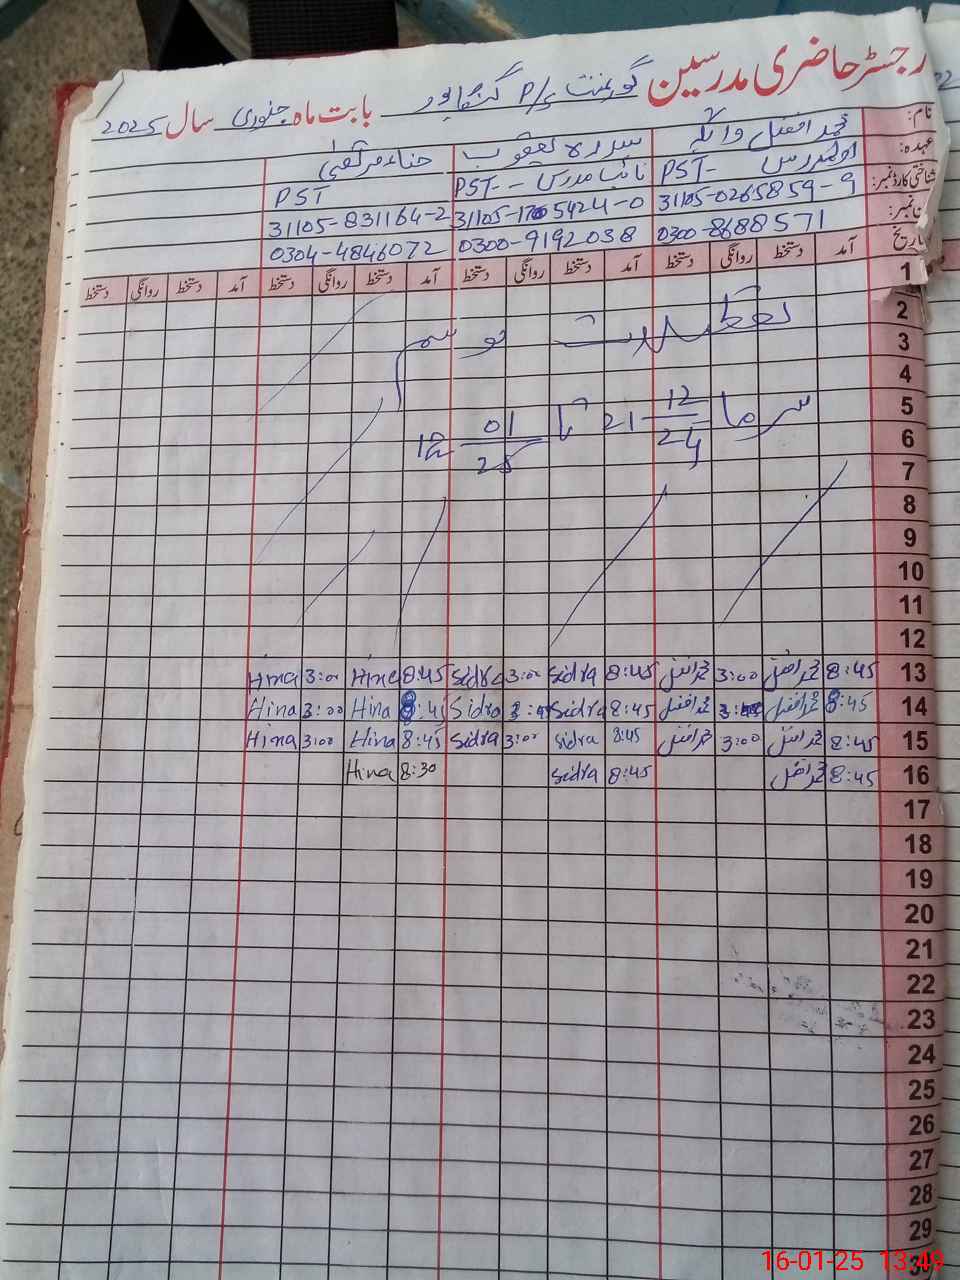 رجسٹر حاضری مدرسین گورنمنٹ P/S بابت ماہ جنوری سال 2025
نام: محمد افضل سدرہ یعقوب حناء مرتضیٰ
عہدہ: اول مدرس PST- نائب مدرس PST-- PST
شناختی کارڈ نمبر: 31105-0265859-9 31105-1765424-0 31105-831164-2
ن نمبر: 0300-8688571 0300-9192038 0304-4846072
تاریخ آمد دستخط روانگی دستخط آمد دستخط روانگی دستخط آمد دستخط روانگی دستخط آمد دستخط روانگی دستخط
1
2 تعطیلات موسم
3
4
5 سرما 21 12/24 تا 12 01/25
6
7
8
9
10
11
12
13 8:45 محمد افضل 3:00 محمد افضل 8:45 Sidra 3:00 Sidra 8:45 Hina 3:00 Hina
14 8:45 محمد افضل محمد افضل 8:45 Sidra Sidra 8:45 Hina 3:00 Hina
15 8:45 محمد افضل 3:00 محمد افضل 8:45 Sidra 3:00 Sidra 8:45 Hina 3:00 Hina
16 8:45 محمد افضل 8:45 Sidra 8:30 Hina
17
18
19
20
21
22
23
24
25
26
27
28
29
30
16-01-25 13:49